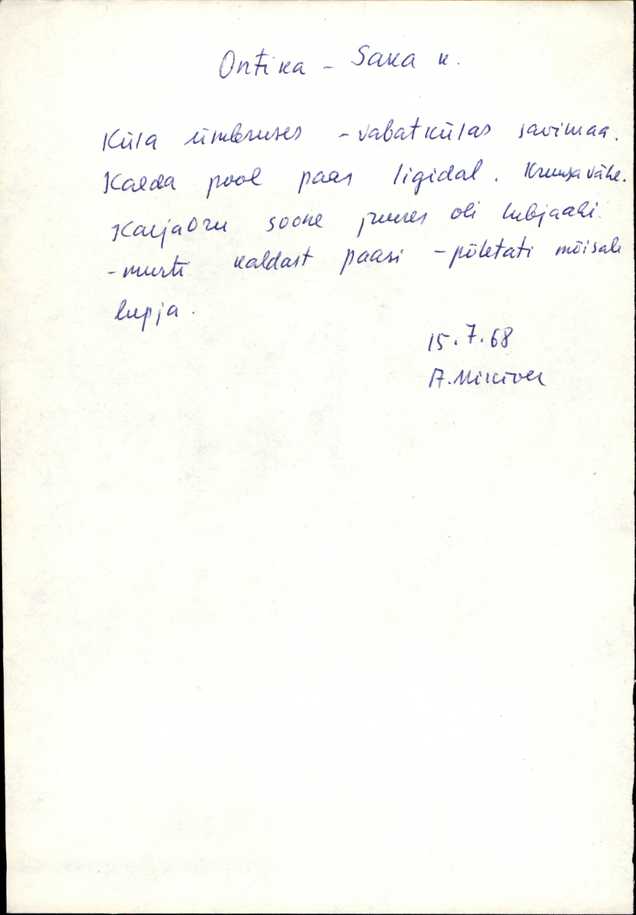 Ontika - Saka k.
Küla ümbruses - vabatkülas savimaa.
Kalda pool paas ligidal. Kruusa vähe.
Karjaoru soone juures oli lubjaahi.
- murti kaldast paasi - põletati mõisale
lupja.
15.7.68
A. Mikiver